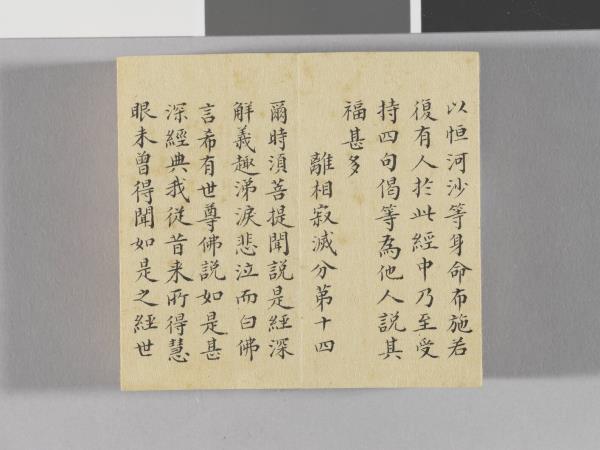 以恒河沙等身命布施若
復有人扵此經中乃至受
持四句偈等為他人說其
福甚多
離相寂滅分第十四
爾時湏菩提聞說是經深
解義趣涕淚悲泣而白佛
言希有世尊佛說如是甚
深經典我從昔来所得慧
眼未曾得聞如是之經世